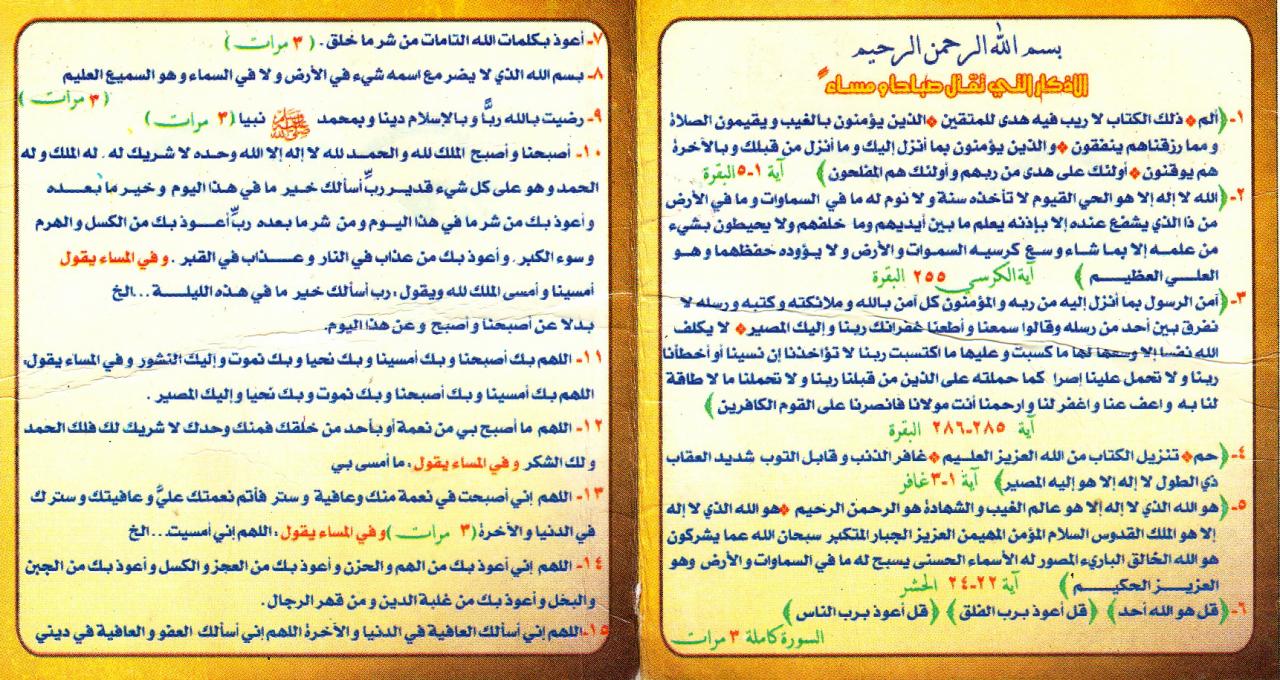 بسم الله الرحمن الرحيم
الاذكار التي تقال صباحا و مساءً
١- ﴿ألم * ذلك الكتاب لا ريب فيه هدى للمتقين * الذين يؤمنون بالغيب و يقيمون الصلاة
و مما رزقناهم ينفقون * و الذين يؤمنون بما أنزل إليك و ما أنزل من قبلك و بالآخرة
هم يوقنون * أولئك على هدى من ربهم و أولئك هم المفلحون﴾ آية ١-٥ البقرة
٢- ﴿الله لا إله إلا هو الحي القيوم لا تأخذه سنة و لا نوم له ما في السماوات و ما في الأرض
من ذا الذي يشفع عنده إلا بإذنه يعلم ما بين أيديهم وما خلفهم ولا يحيطون بشيء
من علمه إلا بما شاء و سع كرسيه السموات و الأرض و لا يؤوده حفظهما و هو
العلي العظيم﴾ آية الكرسي ٢٥٥ البقرة
٣- ﴿آمن الرسول بما أنزل إليه من ربه و المؤمنون كل آمن بالله و ملائكته و كتبه و رسله لا
نفرق بين أحد من رسله وقالوا سمعنا و أطعنا غفرانك ربنا و إليك المصير * لا يكلف
الله نفسا إلا وسعها لها ما كسبت و عليها ما اكتسبت ربنا لا تؤاخذنا إن نسينا أو أخطأنا
ربنا و لا تحمل علينا إصرا كما حملته على الذين من قبلنا ربنا و لا تحملنا ما لا طاقة
لنا به و اعف عنا و اغفر لنا و ارحمنا أنت مولانا فانصرنا على القوم الكافرين﴾
آية ٢٨٥-٢٨٦ البقرة
٤- ﴿حم * تنزيل الكتاب من الله العزيز العليم * غافر الذنب و قابل التوب شديد العقاب
ذي الطول لا إله إلا هو إليه المصير﴾ آية ١-٣ غافر
٥- ﴿هو الله الذي لا إله إلا هو عالم الغيب و الشهادة هو الرحمن الرحيم * هو الله الذي لا إله
إلا هو الملك القدوس السلام المؤمن المهيمن العزيز الجبار المتكبر سبحان الله عما يشركون
هو الله الخالق الباريء المصور له الأسماء الحسنى يسبح له ما في السماوات و الأرض وهو
العزيز الحكيم﴾ آية ٢٢-٢٤ الحشر
٦- ﴿قل هو الله أحد﴾ ﴿قل أعوذ برب الفلق﴾ ﴿قل أعوذ برب الناس﴾
السورة كاملة ٣ مرات
٧- أعوذ بكلمات الله التامات من شر ما خلق. (٣ مرات)
٨- بسم الله الذي لا يضر مع اسمه شيء في الأرض و لا في السماء و هو السميع العليم
(٣ مرات)
٩- رضيت بالله رباًّ و بالإسلام دينا و بمحمد ﷺ نبيا (٣ مرات)
١٠- أصبحنا و أصبح الملك لله و الحمد لله لا إله إلا الله وحده لا شريك له. له الملك و له
الحمد و هو على كل شيء قدير ربِّ أسألك خير ما في هذا اليوم و خير ما بعده
و أعوذ بك من شر ما في هذا اليوم و من شر ما بعده ربِّ أعوذ بك من الكسل و الهرم
و سوء الكبر. و أعوذ بك من عذاب في النار و عذاب في القبر. و في المساء يقول
أمسينا و أمسى الملك لله ويقول: رب أسألك خير ما في هذه الليلة...الخ
بدلا عن أصبحنا و أصبح و عن هذا اليوم.
١١- اللهم بك أصبحنا و بك أمسينا و بك نحيا و بك نموت و إليك النشور و في المساء يقول:
اللهم بك أمسينا و بك أصبحنا و بك نموت و بك نحيا و إليك المصير.
١٢- اللهم ما أصبح بي من نعمة أو بأحد من خلقك فمنك وحدك لا شريك لك فلك الحمد
و لك الشكر و في المساء يقول: ما أمسى بي
١٣- اللهم إني أصبحت في نعمة منك وعافية و ستر فأتم نعمتك عليَّ و عافيتك و سترك
في الدنيا و الآخرة (٣ مرات) و في المساء يقول: اللهم إني أمسيت...الخ
١٤- اللهم إني أعوذ بك من الهم و الحزن و أعوذ بك من العجز و الكسل و أعوذ بك من الجبن
والبخل و أعوذ بك من غلبة الدين و من قهر الرجال.
١٥- اللهم إني أسألك العافية في الدنيا و الآخرة اللهم إني أسألك العفو و العافية في ديني